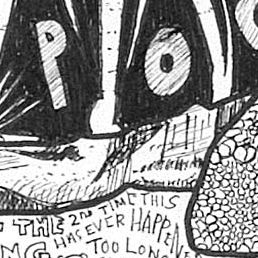 P O
THE 2nd TIME THIS
HAS EVER HAPPENE
TOO LONG